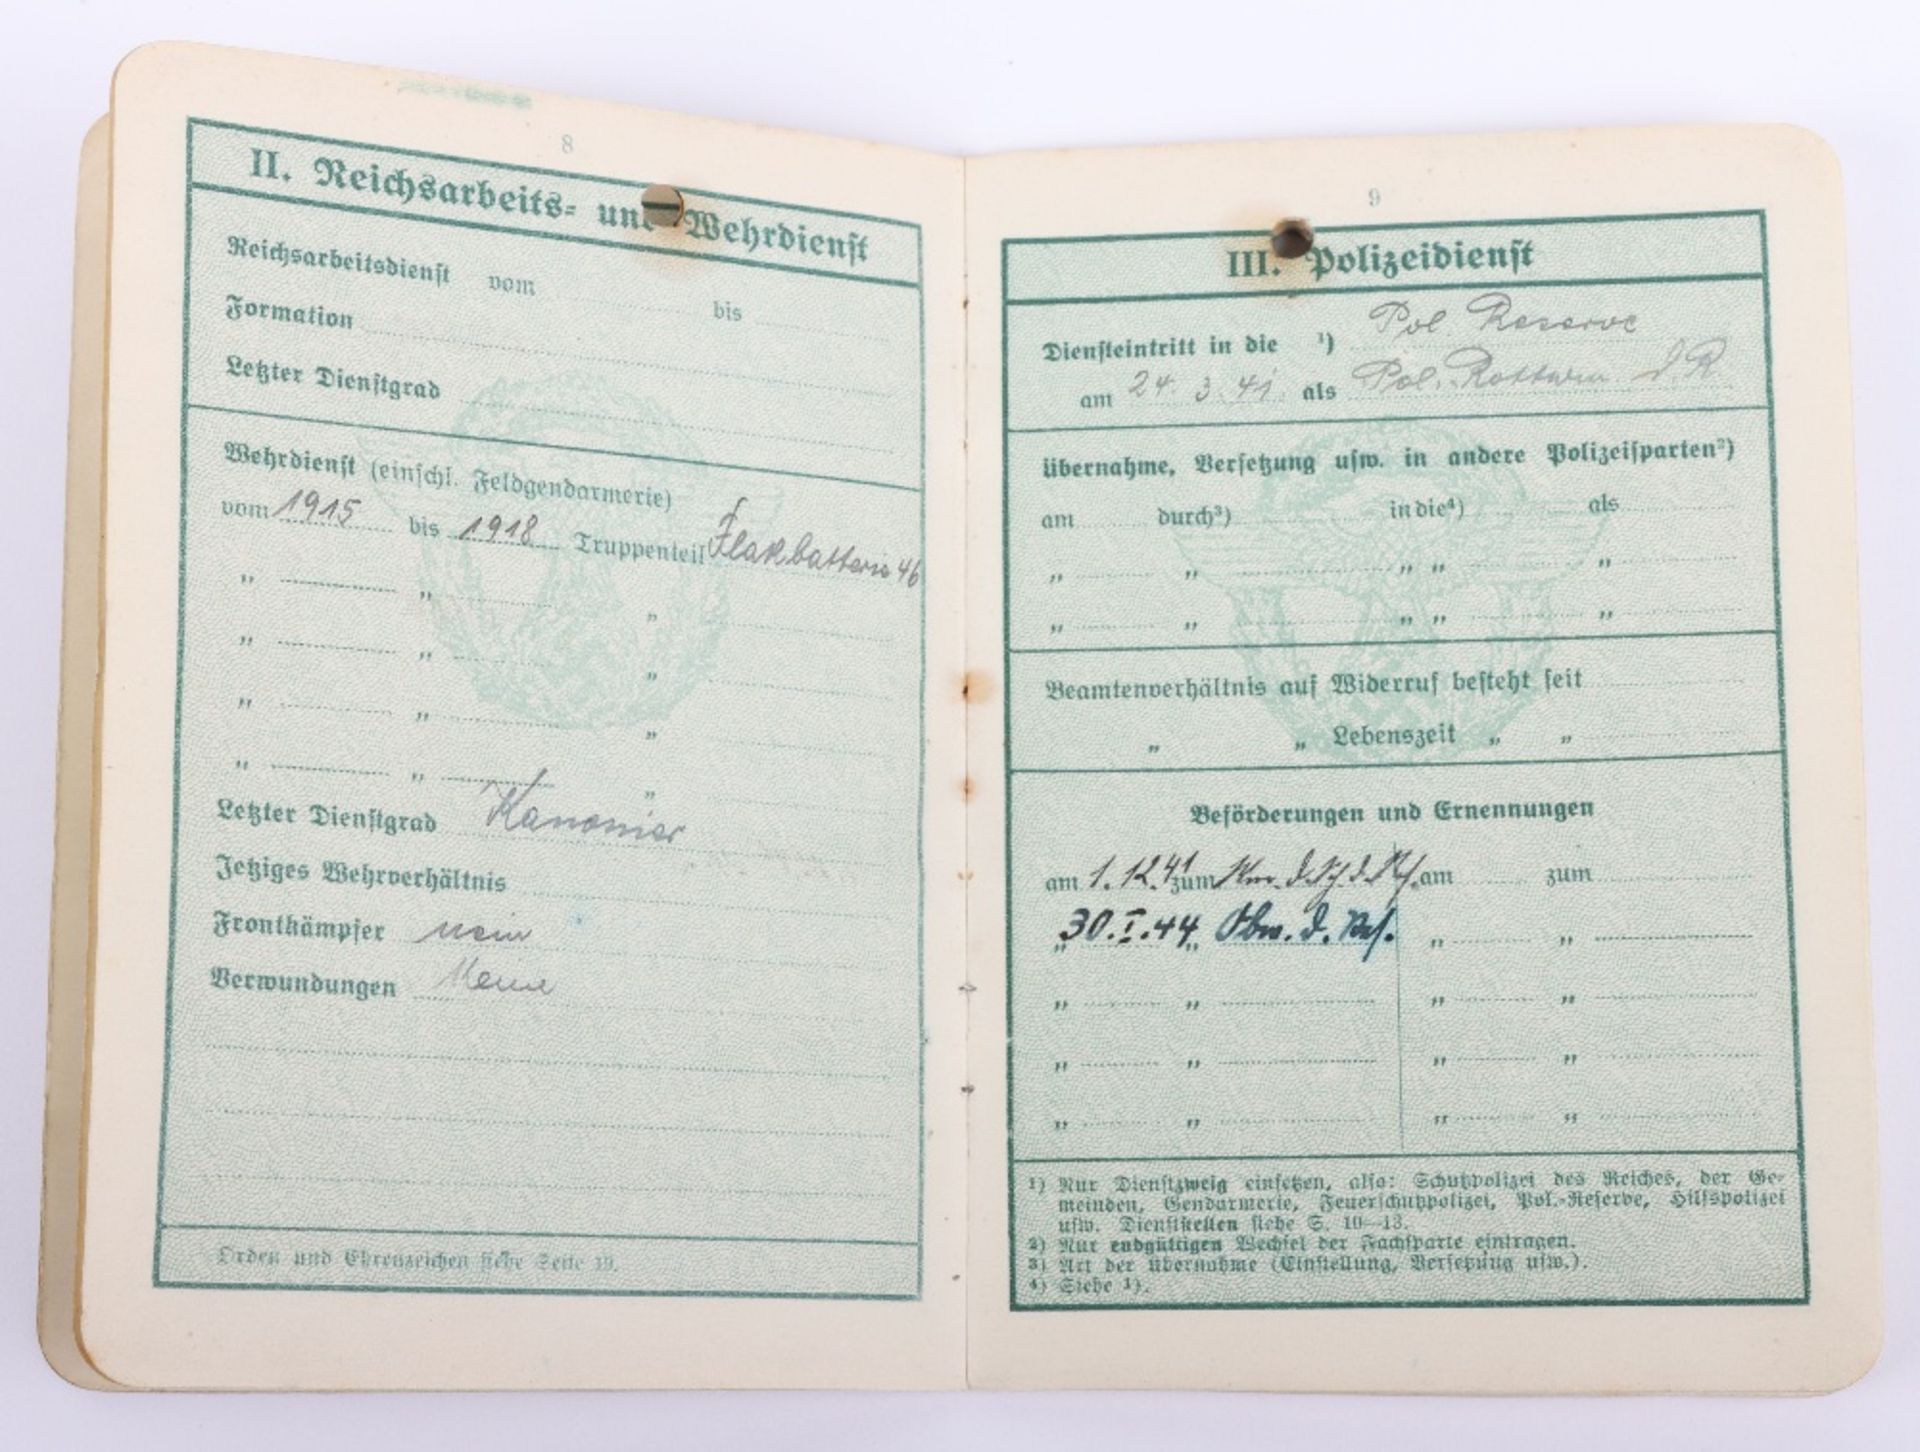 8
II. Reichsarbeits- und Wehrdienst
Reichsarbeitsdienst vom bis
Formation
Letzter Dienstgrad
Wehrdienst (einschl. Feldgendarmerie)
vom 1915 bis 1918 Truppenteil Flakbatterie 46
" " "
" " "
" " "
" " "
Letzter Dienstgrad Kanonier
Jetziges Wehrverhältnis
Frontkämpfer nein
Verwundungen Keine
Orden und Ehrenzeichen siehe Seite 19.
9
III. Polizeidienst
Diensteintritt in die ¹) Pol. Reserve
am 24. 3. 41 als Pol. Rottwm d. R
Übernahme, Versetzung usw. in andere Polizeisparten²)
am durch³) in die⁴) als
" " " " "
" " " " "
Beamtenverhältnis auf Widerruf besteht seit
" " Lebenszeit " "
Beförderungen und Ernennungen
am 1.12.41 zum Wm. d. Sch. d. Rf. am zum
" 30.I.44 " Obw. d. Rf. " "
" " " "
" " " "
" " " "
¹) Nur Dienstzweig einsetzen, also: Schutzpolizei des Reiches, der Ge-
meinden, Gendarmerie, Feuerschutzpolizei, Pol.-Reserve, Hilfspolizei
usw. Dienststellen siehe S. 10—13.
²) Nur endgültigen Wechsel der Fachsparte eintragen.
³) Art der Übernahme (Einstellung, Versetzung usw.).
⁴) Siehe ¹).